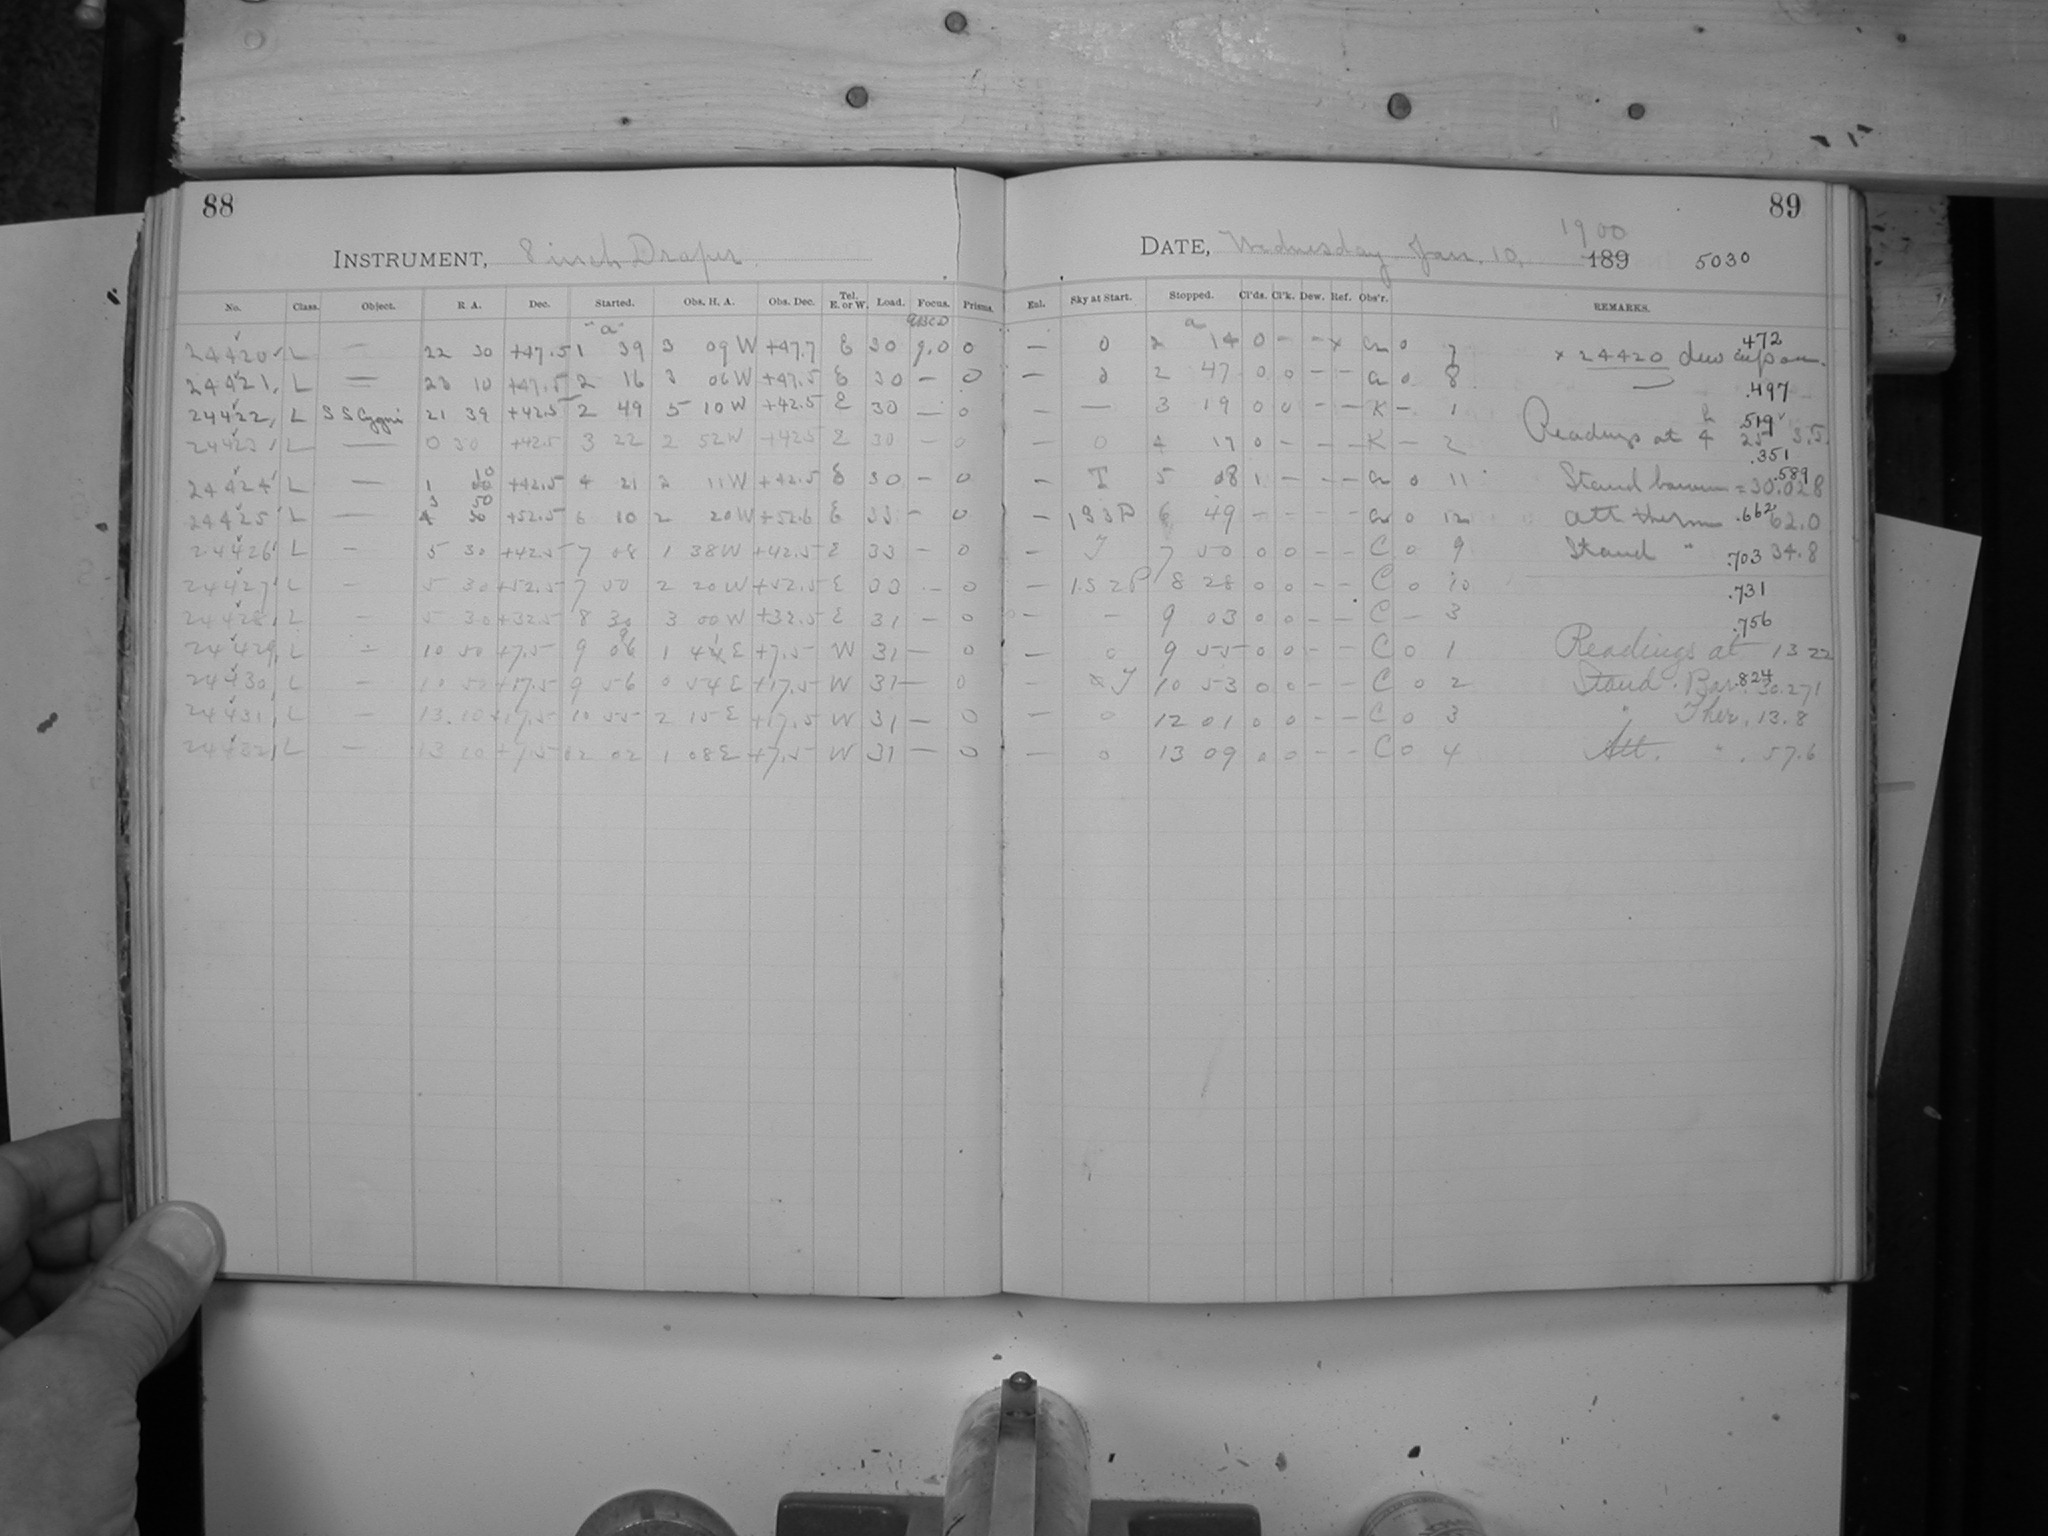 88
89
INSTRUMENT, 8 inch Draper
DATE, Wednesday Jan. 10, 1900 189 5030
No. Class. Object. R. A. Dec. Started. Obs. H. A. Obs. Dec. Tel. E. or W. Load. Focus. Prisms. Enl. Sky at Start. Stopped. Cl'ds. Cl'k. Dew. Ref. Obs'r. REMARKS.
"a" a
24420 L — 22 30 +47.5 1 39 3 09 W +47.7 E 30 9.0 0 — 0 2 14 0 - - x a 0 7 x 24420 dew cap on. .472
24421 L — 23 10 +47.5 2 16 3 06 W +47.5 E 30 — 0 — 0 2 47 0 0 - - a 0 8 .497
24422 L SS Cygni 21 39 +42.5 2 49 5 10 W +42.5 E 30 — 0 — — 3 19 0 0 - - K - 1 Readings at 4 h 25 3.5 .519
24423 L — 0 30 +42.5 3 22 2 52 W +42.5 E 30 — 0 — 0 4 17 0 - - - K - 2 .351
24424 L — 1 10 +42.5 4 21 2 11 W +42.5 E 30 — 0 — I 5 08 1 - - - a 0 11 Stand barom = 30.028 .589
24425 L — 3 50 +52.5 6 10 2 20 W +52.6 E 33 - 0 — 1S3P 6 49 - - - - a 0 12 Att therm .662 62.0
24426 L — 5 30 +42.5 7 08 1 38 W +42.5 E 33 — 0 — I 7 50 0 0 - - C 0 9 Stand " .703 34.8
24427 L — 5 30 +52.5 7 50 2 20 W +52.5 E 33 — 0 — 1S2P 8 28 0 0 - - C 0 10 .731
24428 L — 5 30 +32.5 8 30 3 00 W +32.5 E 31 — 0 — — 9 03 0 0 - - C - 3 .756
24429 L — 10 50 +7.5 9 06 1 44 E +7.5 W 31 — 0 — 0 9 55 0 0 - - C 0 1 Readings at 13 22
24430 L — 10 50 +17.5 9 56 0 54 E +17.5 W 31 — 0 — I 10 53 0 0 - - C 0 2 Stand. Bar. .824 30.271
24431 L — 13 10 +17.5 10 55 2 15 E +17.5 W 31 — 0 — 0 12 01 0 0 - - C 0 3 " Ther. 13.8
24432 L — 13 10 +7.5 12 02 1 08 E +7.5 W 31 — 0 — 0 13 09 0 0 - - C 0 4 Att. " . 57.6